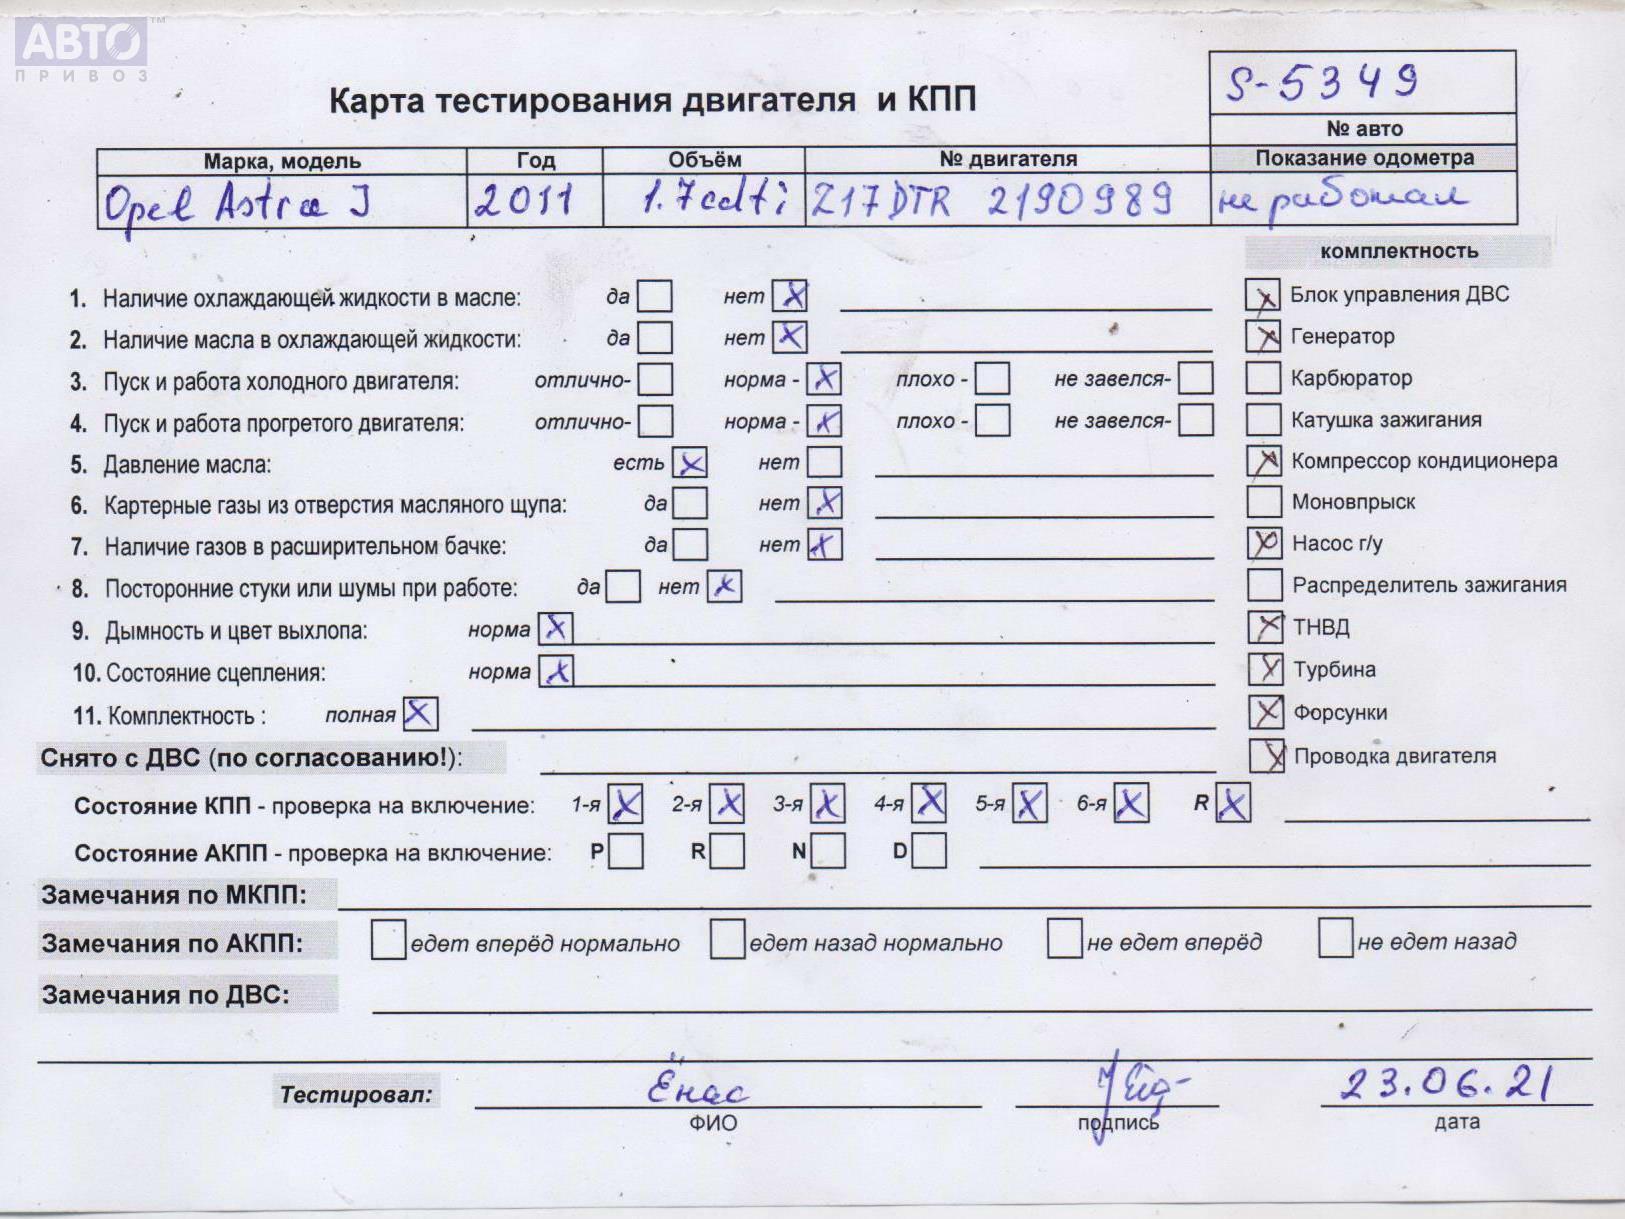 АВТО™
ПРИВОЗ
S-5349
Карта тестирования двигателя и КПП
№ авто
Марка, модель Год Объём № двигателя Показание одометра
Opel Astra J 2011 1.7cdti Z17DTR 2190989 не работал
комплектность
1. Наличие охлаждающей жидкости в масле: да нет X
X Блок управления ДВС
2. Наличие масла в охлаждающей жидкости: да нет X
X Генератор
3. Пуск и работа холодного двигателя: отлично- норма - X плохо - не завелся-
Карбюратор
4. Пуск и работа прогретого двигателя: отлично- норма - X плохо - не завелся-
Катушка зажигания
5. Давление масла: есть X нет
X Компрессор кондиционера
6. Картерные газы из отверстия масляного щупа: да нет X
Моновпрыск
7. Наличие газов в расширительном бачке: да нет X
X Насос г/у
8. Посторонние стуки или шумы при работе: да нет X
Распределитель зажигания
9. Дымность и цвет выхлопа: норма X
X ТНВД
10. Состояние сцепления: норма X
X Турбина
11. Комплектность : полная X
X Форсунки
Снято с ДВС (по согласованию!):
X Проводка двигателя
Состояние КПП - проверка на включение: 1-я X 2-я X 3-я X 4-я X 5-я X 6-я X R X
Состояние АКПП - проверка на включение: P R N D
Замечания по МКПП:
Замечания по АКПП: едет вперёд нормально едет назад нормально не едет вперёд не едет назад
Замечания по ДВС:
Тестировал: Ёнас 23.06.21
ФИО подпись дата